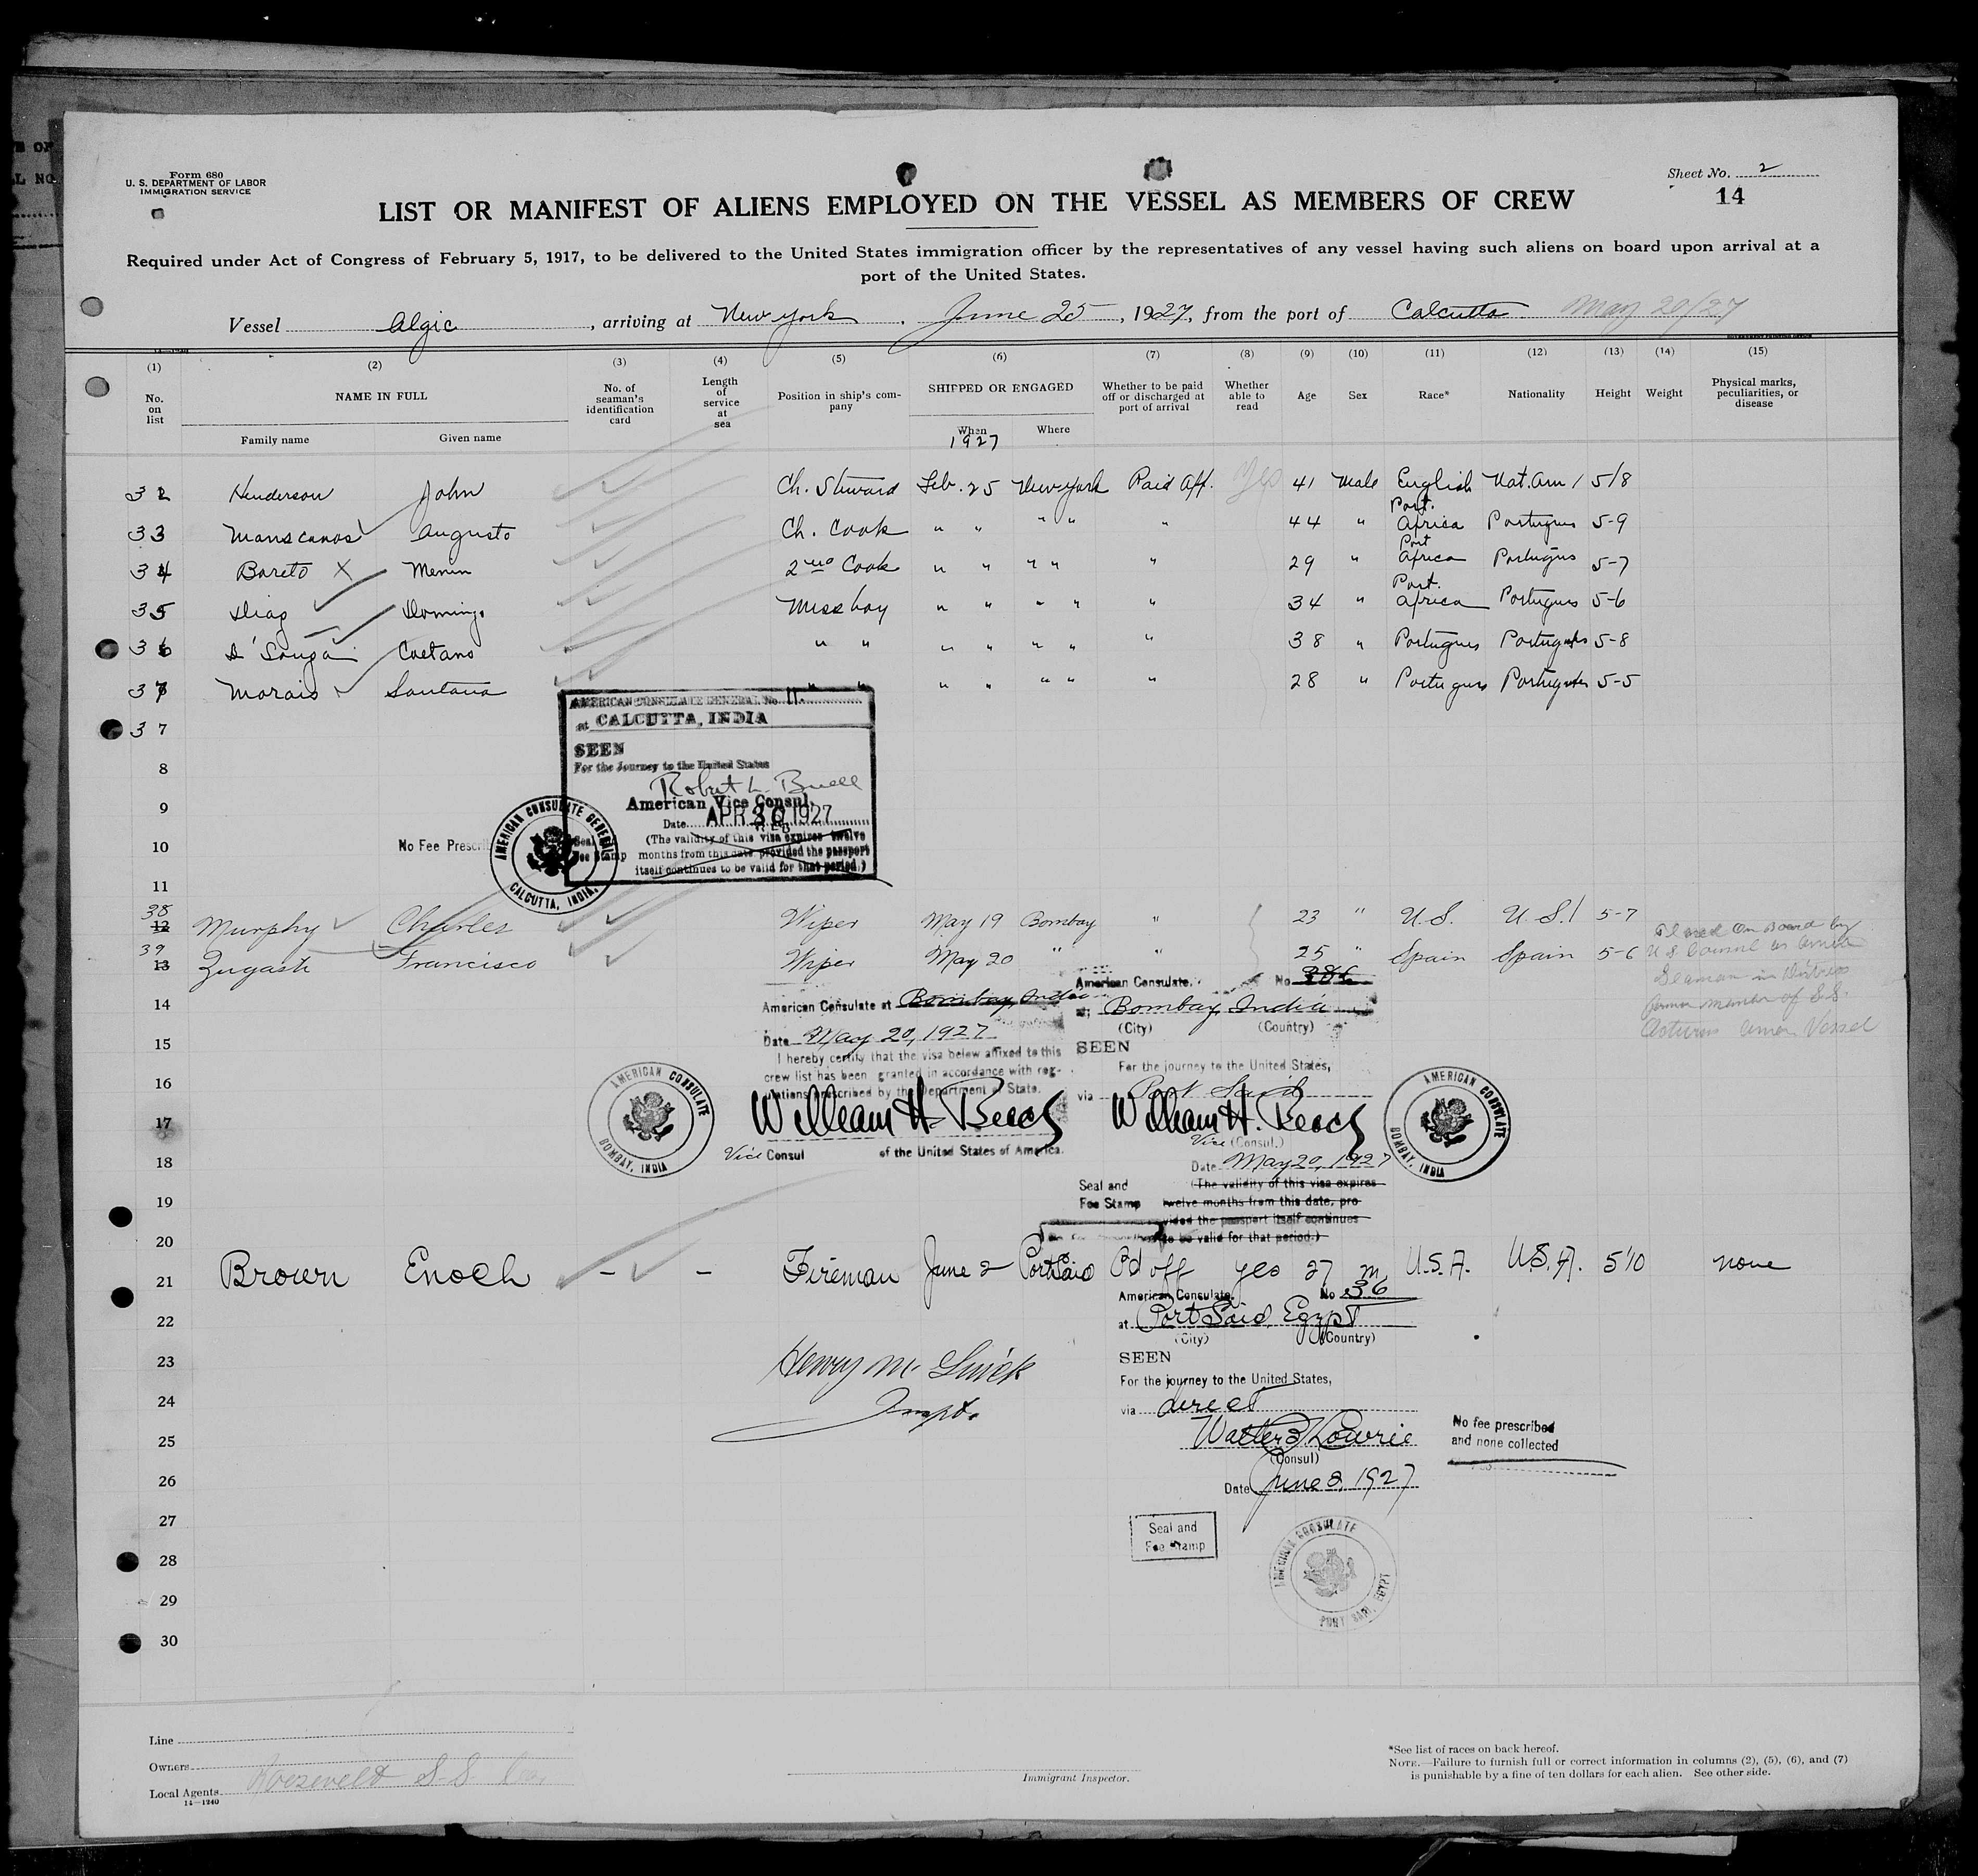 Form 680
U. S. DEPARTMENT OF LABOR
IMMIGRATION SERVICE
Sheet No. 2
14
LIST OR MANIFEST OF ALIENS EMPLOYED ON THE VESSEL AS MEMBERS OF CREW
Required under Act of Congress of February 5, 1917, to be delivered to the United States immigration officer by the representatives of any vessel having such aliens on board upon arrival at a
port of the United States.
Vessel Algic, arriving at New York, June 25, 1927, from the port of Calcutta May 20/27
(1) (2) (3) (4) (5) (6) (7) (8) (9) (10) (11) (12) (13) (14) (15)
No. on list
NAME IN FULL
Family name
Given name
No. of seaman's identification card
Length of service at sea
Position in ship's company
SHIPPED OR ENGAGED
When
1927
Where
Whether to be paid off or discharged at port of arrival
Whether able to read
Age
Sex
Race*
Nationality
Height
Weight
Physical marks, peculiarities, or disease
32 Henderson John Ch. Steward Feb. 25 New York Paid off. Yes 41 Male English Nat. Am 5/8
33 Augusto Ch. Cook " " " " " 44 " Port. Africa Portugues 5-9
34 Bareto X Menin 2nd Cook " " " " " 29 " Port Africa Portugus 5-7
35 Diaz Domingo Messboy " " " " " 34 " Port. Africa Portugues 5-6
36 D'Souza Caetano " " " " " " " 38 " Portugues Portugues 5-8
37 Morais Santana " " " " " " " 28 " Portugues Portugues 5-5
37
8
9
10
11
AMERICAN CONSULATE GENERAL No. 11.
at CALCUTTA, INDIA
SEEN
For the Journey to the United States
Robert L. Buell
American Vice Consul.
Date APR 30 1927
(The validity of this visa expires twelve
months from this date provided the passport
itself continues to be valid for that period.)
Seal and
Fee Stamp
No Fee Prescri
AMERICAN CONSULATE GENERAL
CALCUTTA, INDIA.
38 12 Murphy Charles Wiper May 19 Bombay " 23 " U.S. U.S. 5-7
39 13 Zugasti Francisco Wiper May 20 " " 25 " Spain Spain 5-6
On Board by
U S Consul as
Seaman in distress
of S.S.
Vessel
14
15
16
17
18
19
20
American Consulate at Bombay, India
Date May 20, 1927
I hereby certify that the visa below affixed to this
crew list has been granted in accordance with reg-
ulations prescribed by the Department of State.
William H. Beach
Vice Consul of the United States of America.
AMERICAN CONSULATE
BOMBAY, INDIA
American Consulate, No.
at Bombay, India
(City) (Country)
SEEN
For the journey to the United States,
via Port Said
William H. Beach
Vice (Consul.)
Date May 20, 1927
Seal and
Fee Stamp
(The validity of this visa expires
twelve months from this date, pro
vided the passport itself continues
to be valid for that period.)
AMERICAN CONSULATE
BOMBAY, INDIA
21 Brown Enoch - - Fireman June 2 Port Said Pd off yes 27 m U.S.A. U.S.A. 5'10 none
22
23
24
25
26
27
28
29
30
American Consulate, No 36
at Port Said, Egypt
(City) (Country)
SEEN
For the journey to the United States,
via direct
Walter Lowrie
(Consul)
Date June 2, 1927
No fee prescribed
and none collected
Seal and
Fee Stamp
AMERICAN CONSULATE
PORT SAID, EGYPT
Henry
Inspt.
Line
Owners
Local Agents Roosevelt S-S Co.
14—1240
Immigrant Inspector.
*See list of races on back hereof.
NOTE.—Failure to furnish full or correct information in columns (2), (5), (6), and (7)
is punishable by a fine of ten dollars for each alien. See other side.